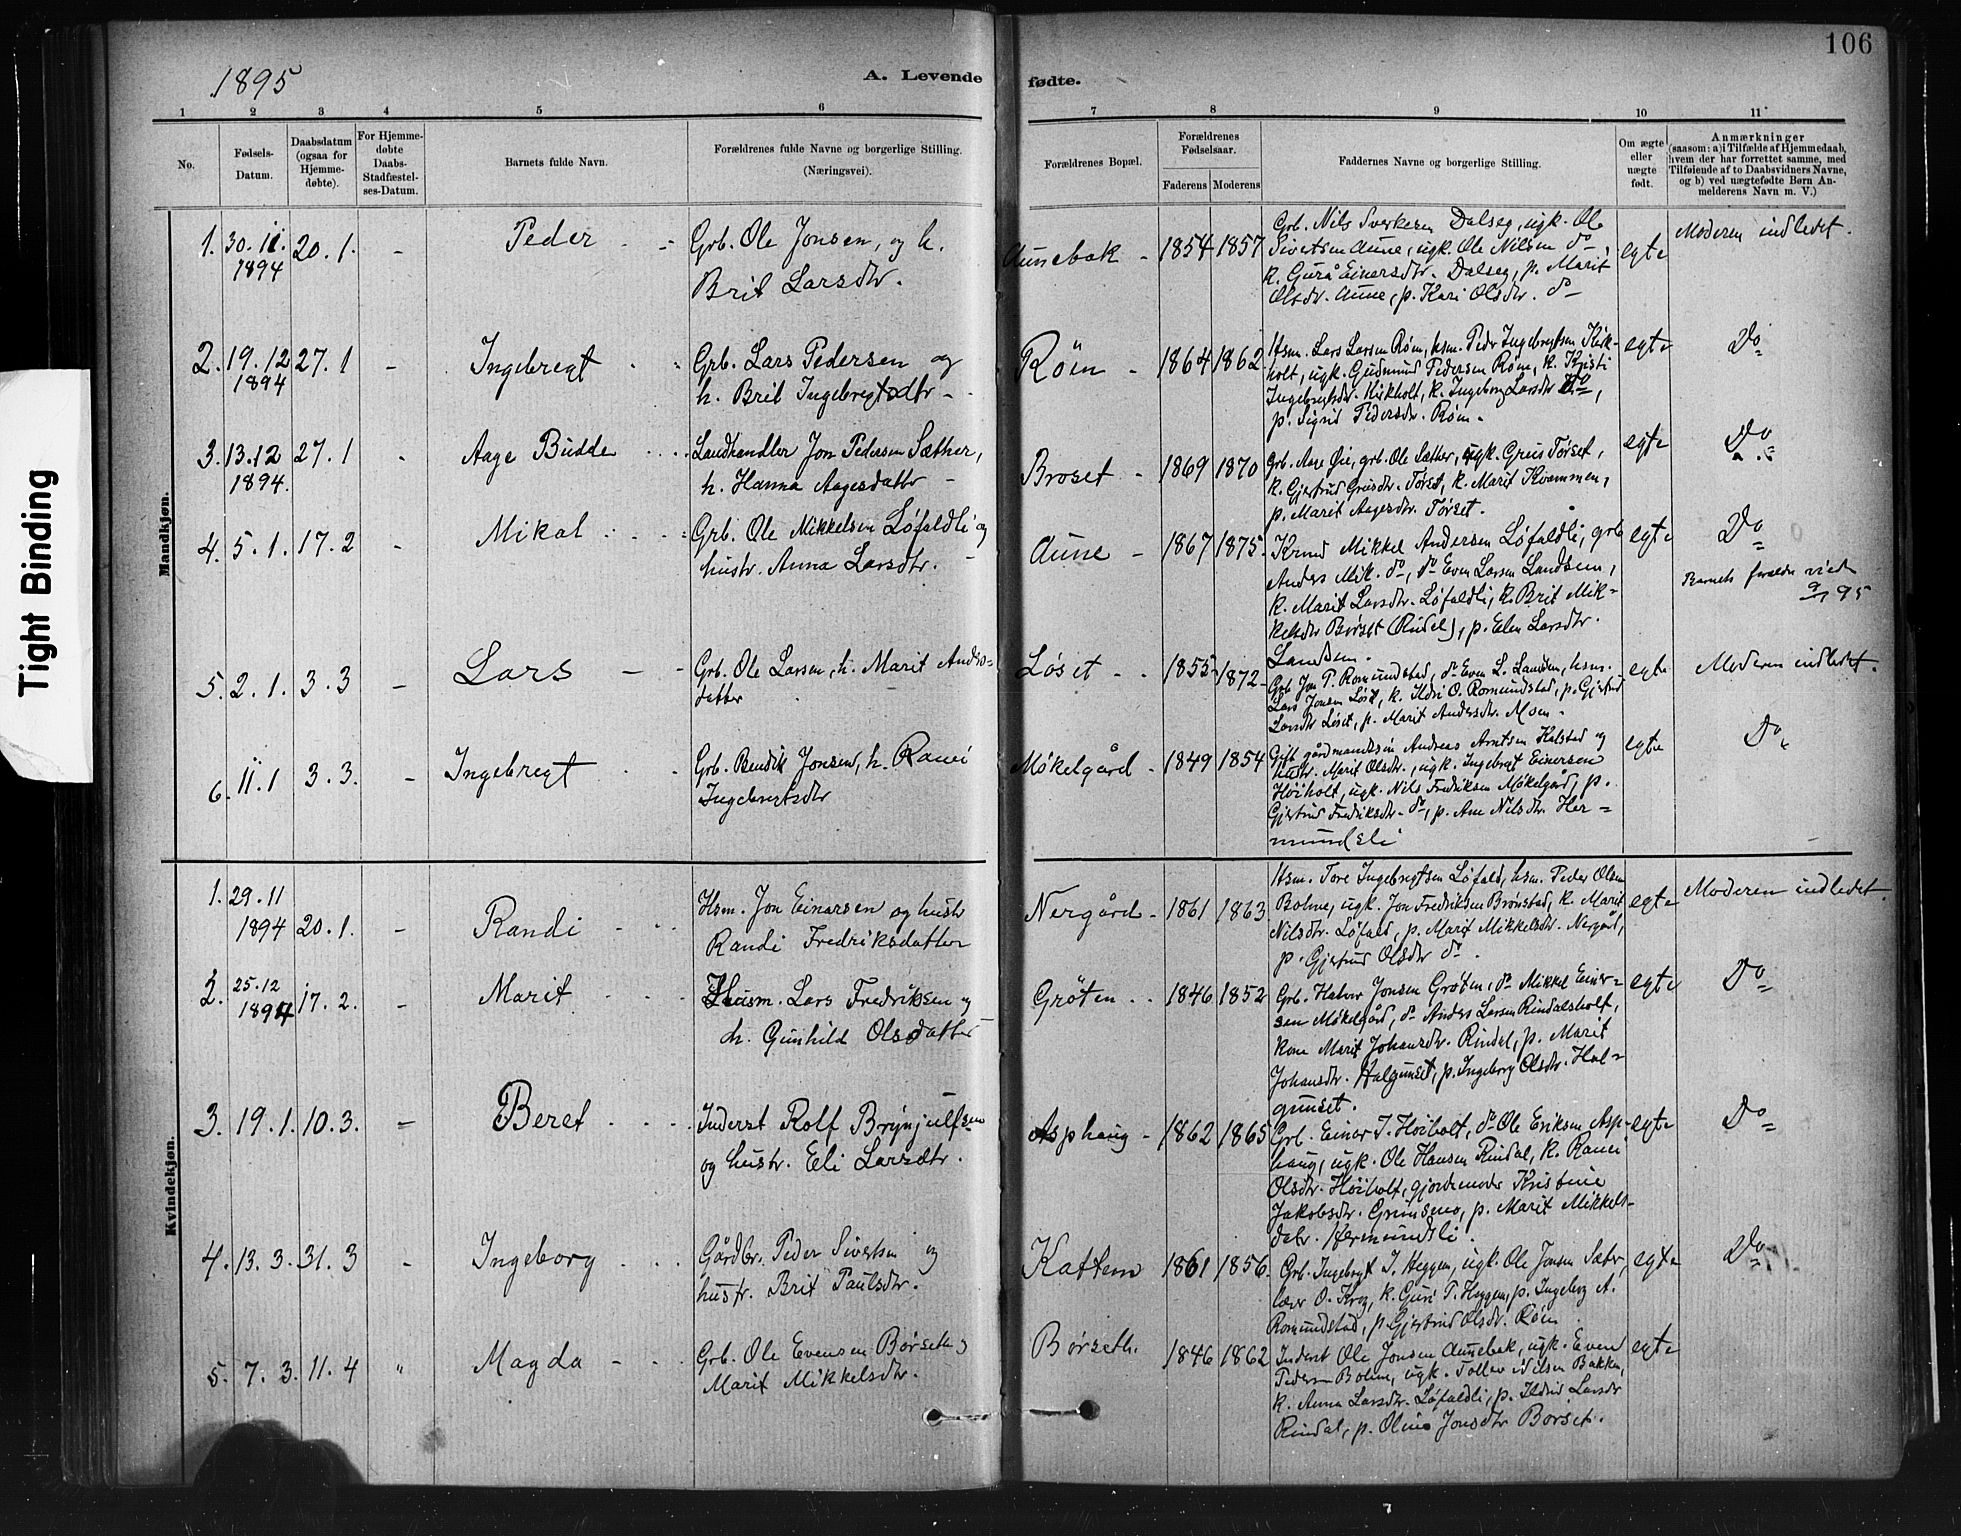 106
1895
A. Levende fødte.
1 2 3 4 5 6 7 8 9 10 11
No.
Fødsels-
Datum.
Daabsdatum
(ogsaa for
Hjemme-
døbte).
For Hjemme-
døbte
Daabs-
Stadfæstel-
ses-Datum.
Barnets fulde Navn.
Forældrenes fulde Navne og borgerlige Stilling.
(Næringsvei).
Forældrenes Bopæl.
Forældrenes
Fødselsaar.
Faderens Moderens
Faddernes Navne og borgerlige Stilling.
Om ægte
eller
uægte
født.
Anmærkninger
(saasom: a) i Tilfælde af Hjemmedaab,
hvem der har forrettet samme, med
Tilføiende af to Daabsvidners Navne,
og b) ved uægtefødte Børn An-
melderens Navn m. V.)
Tight Binding
Mandkjøn.
1. 30.11. 1894 20.1. - Peder
Grb. Ole Jonsen, og h.
Brit Larsdtr.
Aunebak - 1854 1857
Grb. Nils Sverkesen Dalseg, ugk. Ole
Sivertsen Aune, ugk. Ole Nilsen do,
k. Gurå Einersdtr. Dalseg, p. Marit
Olsdr. Aune, p. Kari Olsdtr. do
egte
Moderen indledet.
2. 19.12 1894 27.1 - Ingebregt
Grb. Lars Pedersen og
h. Brit Ingebregtsdtr -
Røen - 1864 1862
Hsm. Lars Larsen Røen, hsm. Peder Ingebrigtsen Kirk-
holt, ugk. Gudmund Pedersen Røen, k. Kristi
Ingebrigtsdr. Kirkholt, k. Ingeborg Larsdtr do,
p. Sigrid Pedersdr. Røen.
egte
Do
3. 13.12 1894. 27.1 - Aage Budde
Landhandler Jon Pedersen Sæther,
h. Hanna Aagesdatter -
Broset - 1869 1870
Grb. Aage Øie, grb. Ole Sæther, ugk. Greis Tørset,
k. Gjertrud Greisdtr. Tørset, k. Marit Kvammen,
p. Marit Aagesdr. Tørset.
egte
Do
4. 5.1. 17.2 - Mikal
Grb. Ole Mikkelsen Løfaldli og
hustr. Anna Larsdtr. -
Aune - 1867 1875.
Kaarmd Mikkel Andersen Løfaldli, grb
Anders Mik. do, do Even Larsen Landsem,
k. Marit Larsdtr. Løfaldli, k. Brit Mik-
kelsdtr Børset (Rindal), p. Elen Larsdtr.
Landsem.
egte
Do
Barnets forældre viede
9/1 95
5. 2.1. 3.3 - Lars
Grb. Ole Larsen, h. Marit Anders-
datter
Løset - 1855 1872
Grb Jon P. Romundstad, do Even L. Landsem, hsm.
Lars Jonsen Løset, k. Ildri O. Romundstad, p. Gjertrud
Larsdtr Løset, p. Marit Andersdtr. Moen.
egte
Moderen indledet.
6. 11.1 3.3. - Ingebregt
Grb. Bendik Jonsen, h. Ranei
Ingebrigtsdtr
Møkelgård - 1849 1854
Gift gårdmandssøn Andreas Arntsen Halstad og
hustr. Marit Olsdtr., ugk. Ingebrigt Einersen
Høiholt, ugk. Nils Fredriksen Møkelgård, p.
Gjertrud Fredriksdtr. do, p. Ane Nilsdtr. Her-
mundsli
egte
Do
Kvindekjøn.
1. 29.11 1894 20.1. - Randi
Hsm. Jon Einarsen og hustr
Randi Fredriksdatter
Nergård - 1861 1863
Hsm. Tore Ingebregtsen Løfald, hsm. Peder Olsen
Bolme, ugk. Jon Fredriksen Brønstad, k. Marit
Nilsdtr. Løfald, p. Marit Mikkelsdtr. Nergård,
p. Gjertrud Olsdtr do.
egte
Moderen indledet
2. 25.12 1894 17.2. - Marit
Husm. Lars Fredriksen og
h. Gunhild Olsdatter
Grøten - 1846 1852
Grb. Halvor Jonsen Grøten, do Mikkel Einer-
sen Møkelgård, do Anders Larsen Rindalsholt,
kone Marit Johansdr. Rindal, p. Marit
Johansdr. Halgunset, p. Ingeborg Olsdtr. Hal-
gunset.
egte
Do
3. 19.1. 10.3. - Beret
Inderst Rolf Brynjulfsen
og hustr. Eli Larsdtr.
Asphaug - 1862 1865
Grb. Einar I. Høiholt, do Ole Eriksen Asp-
haug, ugk. Ole Hansen Rindal, k. Ranei
Olsdtr. Høiholt, gjordemoder Kristine
Jakobsdtr. Grimsmo, p. Marit Mikkels-
datr. Hermundsli.
egte
Do
4. 13.3. 31.3 - Ingeborg
Gårdbr. Peder Sivertsen og
hustr. Brit Paulsdtr.
Kattem 1861 1856.
Grb. Ingebrigt I. Heggem, ugk. Ole Jonsen Sæter,
lærer O. Krog, k. Guri P. Heggem, p. Ingeborg A.
Romundstad, p. Gjertrud Olsdtr. Røen
egte
Do
5. 7.3. 11.4 " Magda
Grb. Ole Evensen Børseth,
Marit Mikkelsdtr.
Børseth. 1846 1862
Inderst Ole Jonsen Aunebak, ugk. Even
Pedersen Bolme, ugk. Tollev Nilsen Bakken,
k. Anna Larsdtr. Løfaldli, p. Ildrid Larsdr
Rindal, p. Oline Jonsdtr Børset.
egte